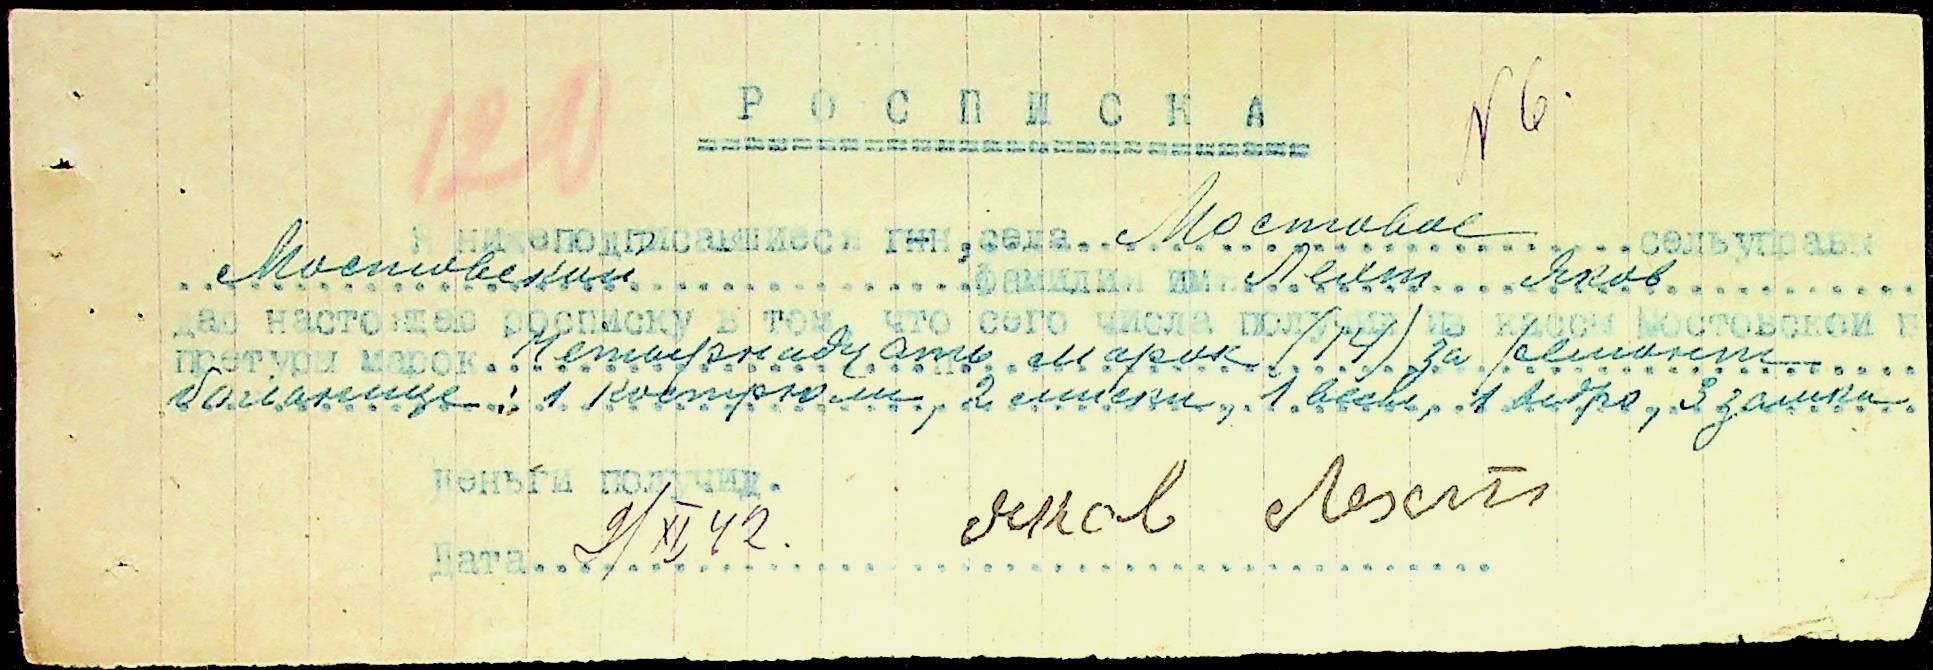 120
РОСПИСКА
N 6.
Я нижеподписавшиеся гр-н, села Мостовое сельуправи
Мостовской фамилия имя Лехт Яков
даю настоящею росписку в том, что сего числа получил из кассы Мостовской п
претуры марок Четырнадцать марок (14) за ремонт
: 1 кострюли, 2 миски, 1 весы, 1 ведро, 3 замка
Деньги получил.
Яков Лехт
Дата 9/XI 42.